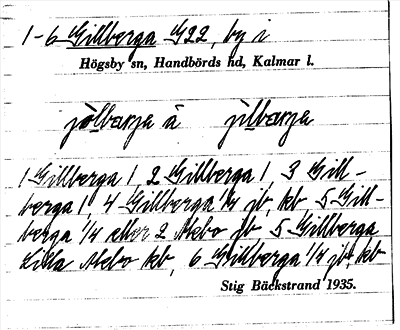 1-6 Gillberga G22, by i
Högsby sn, Handbörds hd, Kalmar l.
jòlbærja ä jìlbærja
1 Gillberga 1 2 Gillberga 1 3 Gill-
berga 1, 4 Gillberga 1/4 jb, kb 5 Gill-
berga 1/4 eller 2 Mebo jb 5 Gillberga
Lilla Mebo kb, 6 Gillberga 1/4 jb, kb
Stig Bäckstrand 1935.